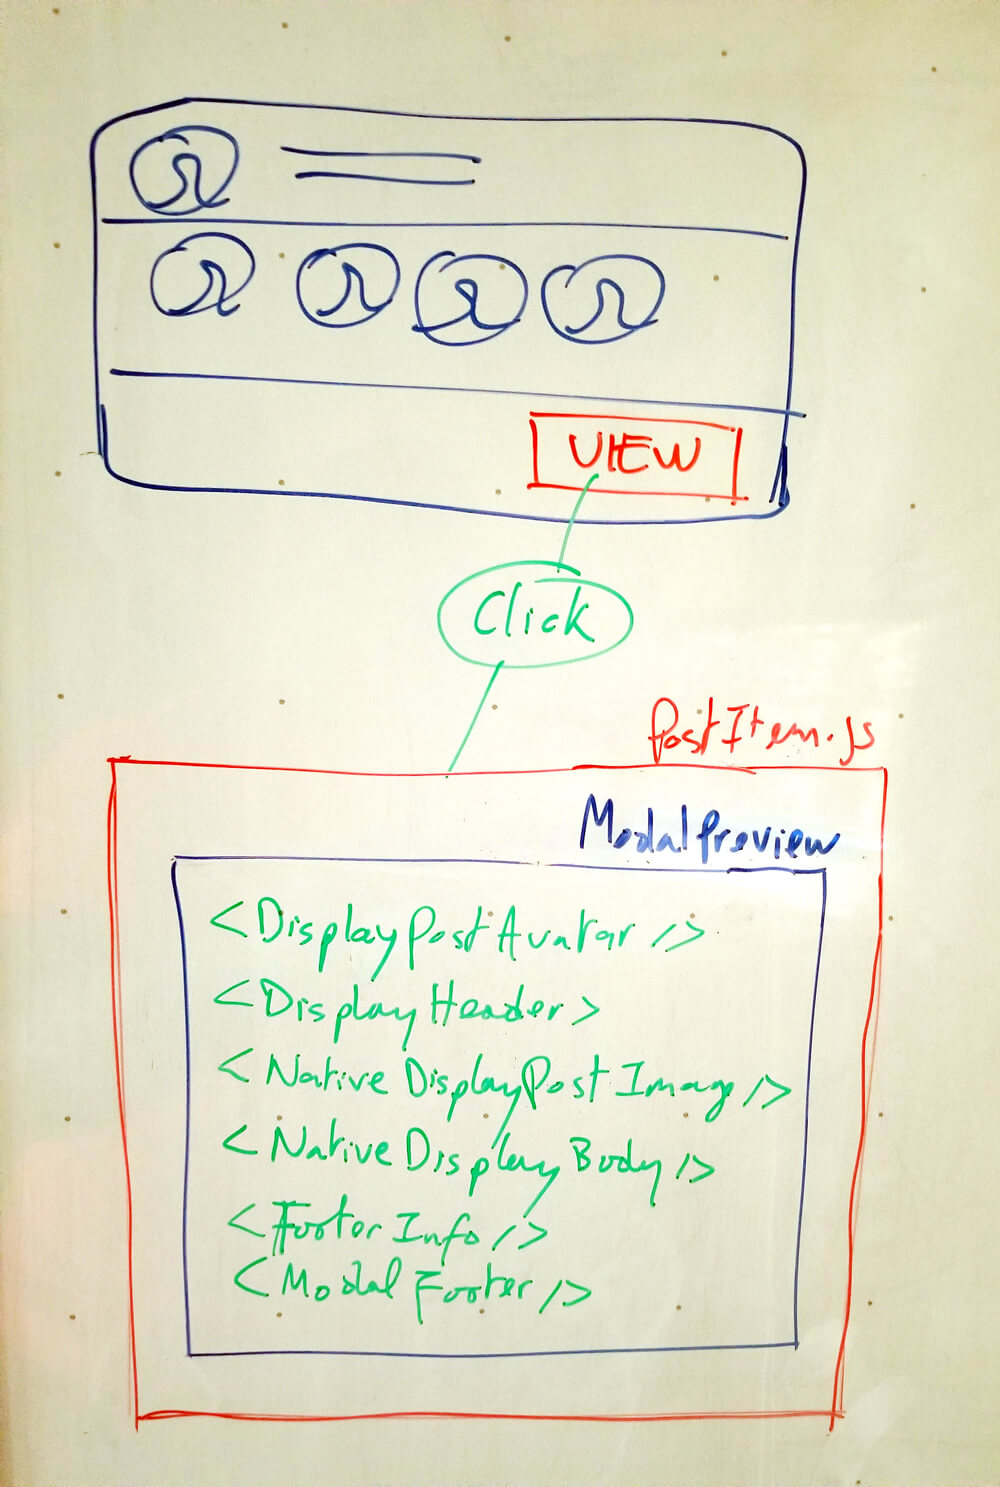 VIEW
Click
PostItem.js
ModalPreview
<DisplayPostAvatar />
<DisplayHeader>
<NativeDisplayPostImage />
<NativeDisplayBody />
<FooterInfo />
<ModalFooter />